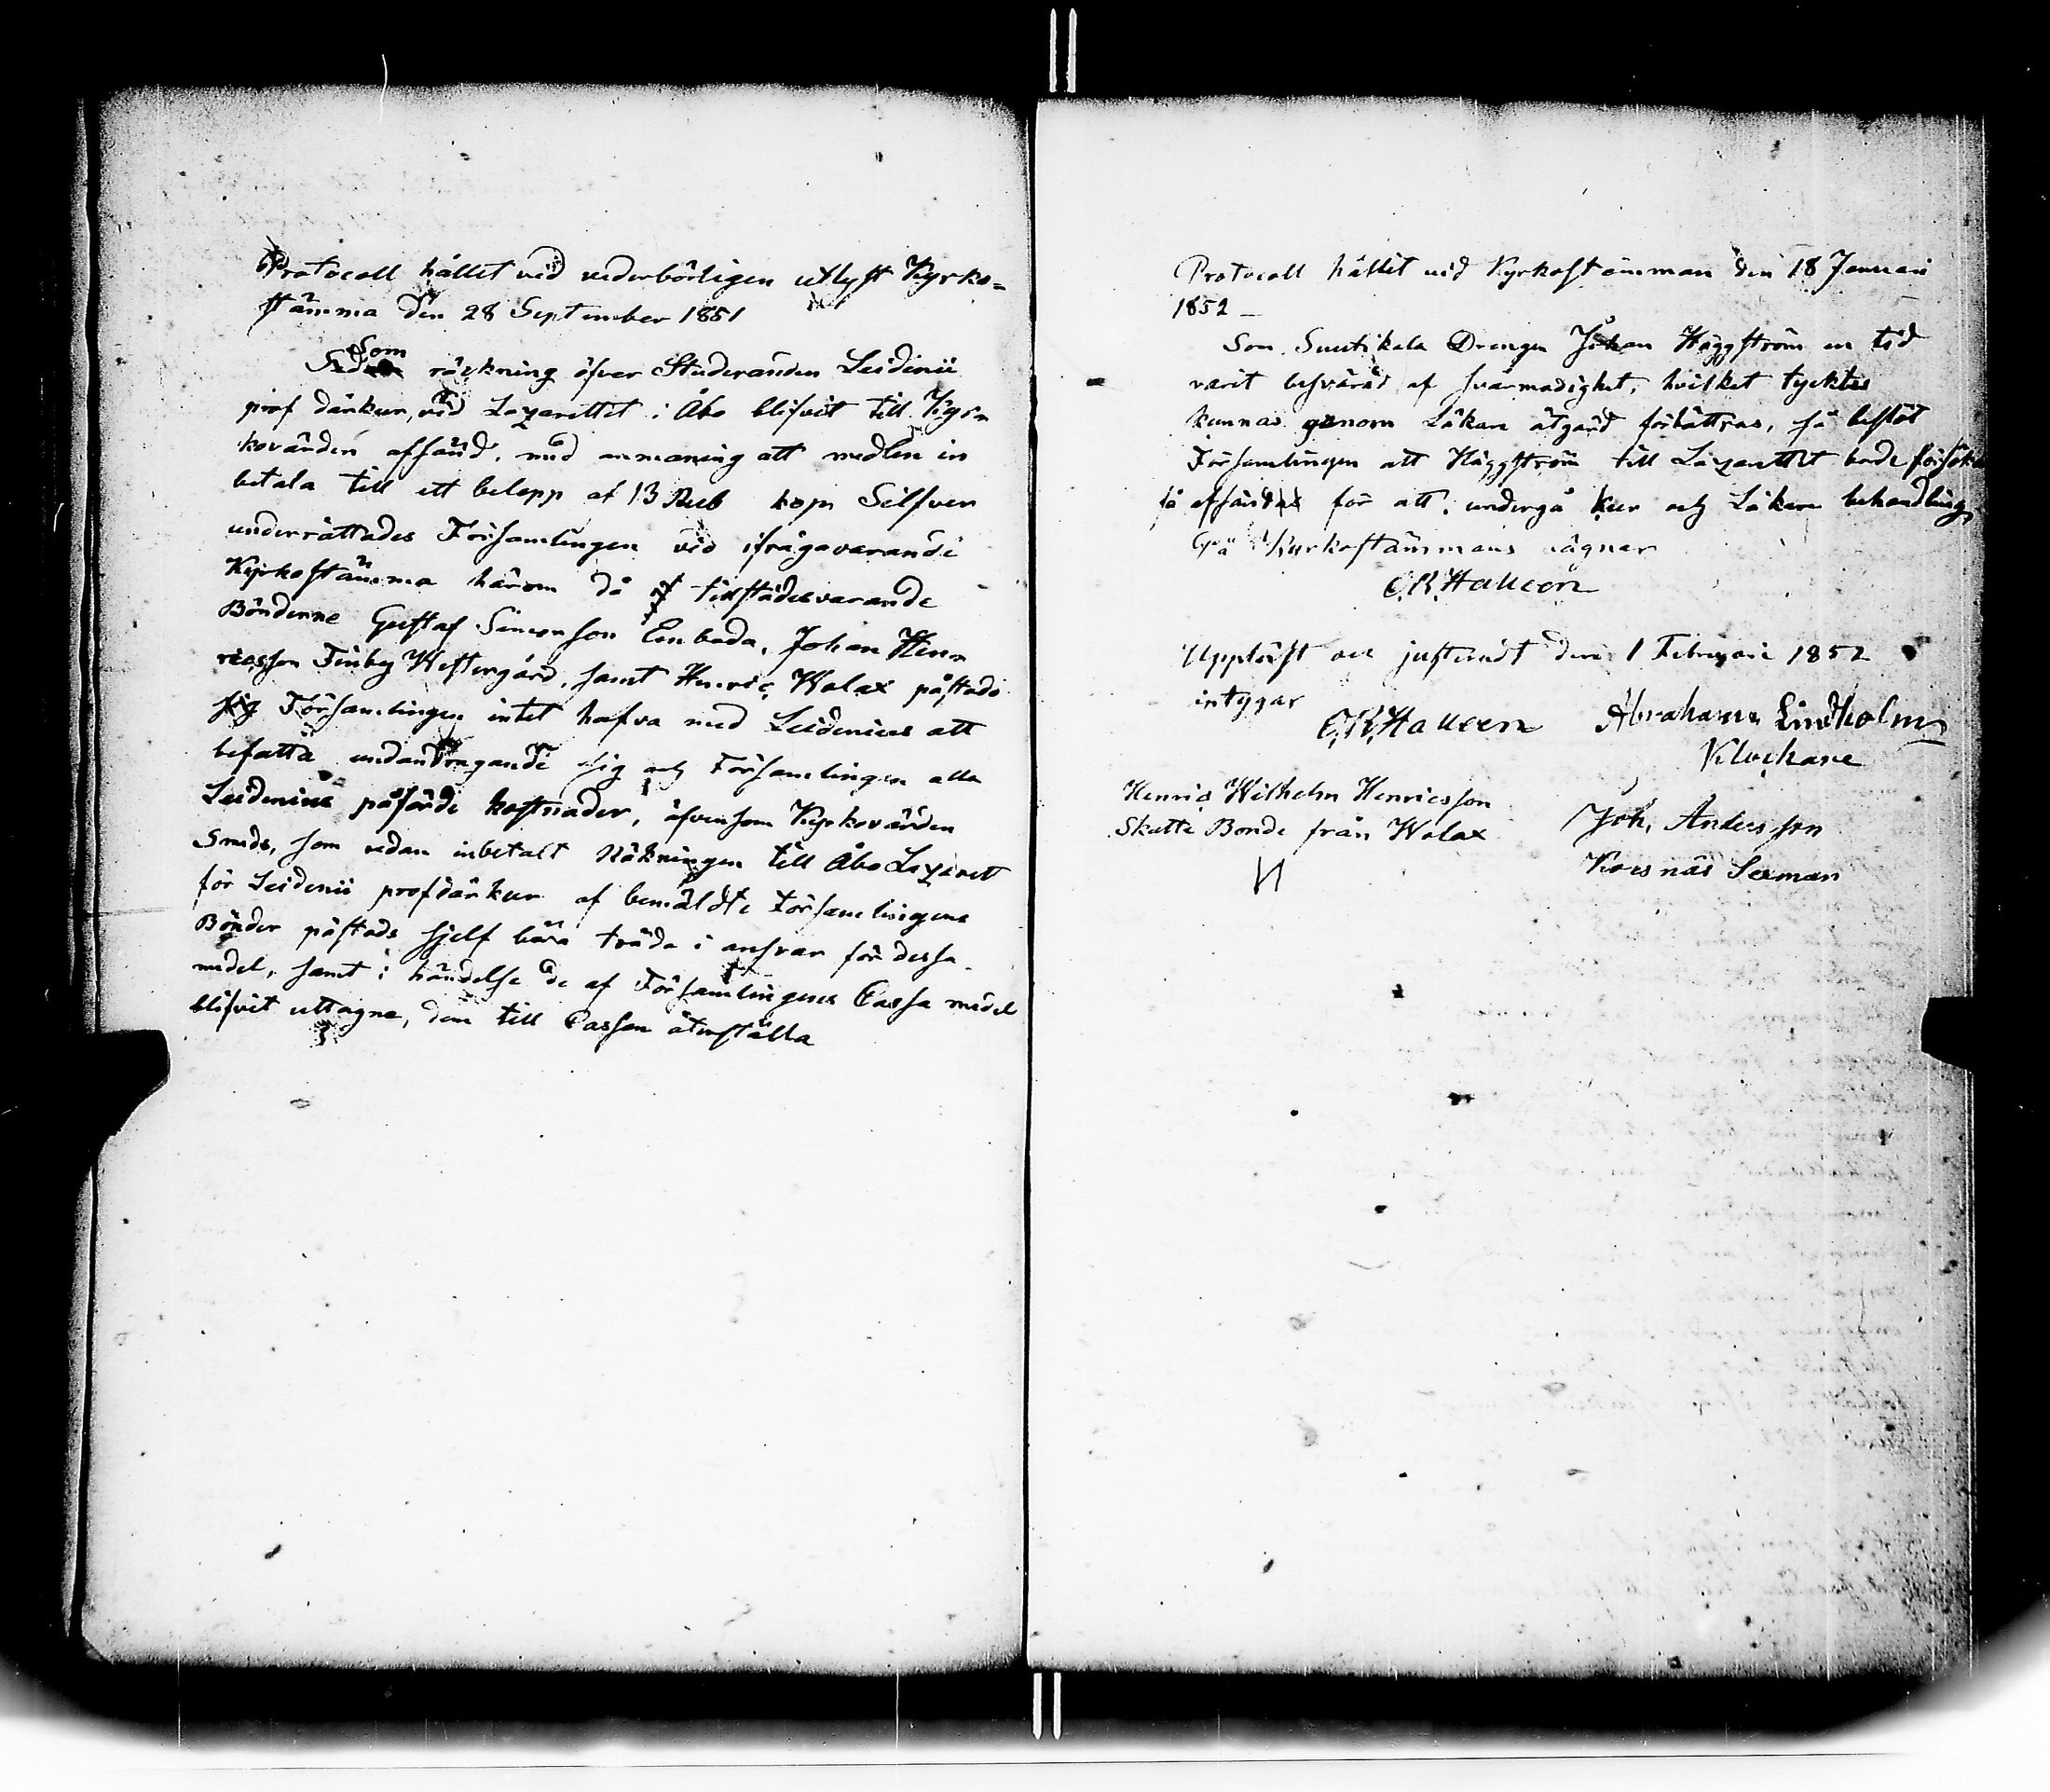 Protocoll hållet vid vederbörligen utlyst Kyrko=
stämma den 28 September 1851
Som räckning öfver Studeranden Leidenii
prof därkur, vid Lazarettet i Åbo blifvit till Kyr=
kovärden afsänd, med anmaning att medlen in
betala till ett belopp af 13 Rub kop Silfver
underrättades Församlingen vid ifrågavarande
Kyrkostämma härom då tillstädesvarande
Bönderne Gustaf Simonsson Emboda, Johan Hen=
ricsson Finby Westergård, samt Henric Walax påstodo
sig Församlingen intet hafva med Leidenius att
befatta undandragande sig och Församlingen alla
Leidenius påförde kostnader, äfvensom Kyrkovärden
Smeds, som redan inbetalt Räkningen till Åbo Lazarett
för Leidenii profdärkur af bemäldte Församlingens
Bönder påstods sjelf böra träda i ansvar för dessa
medel, samt i händelse de af Församlingens Cassa medel
blifvit uttagne, dem till Cassan återställa
Protocoll hållit vid Kyrkostämman den 18 Januari
1852
Som Drengen Johan Häggström en tid
varit besvärad af svårmodighet, hvilket tycktes
kunnas genom Läkare åtgärd förbättras, så beslöt
Församlingen att Häggström till Lazarettet borde försöka
få afsändas för att undergå kur och Läkare behandling
På Kyrkostämmans vägnar
C.R. Halleen
Uppläst och justeradt den 1 Februari 1852
intygar
C.R. Halleen Abraham Lindholm
Klockare
Henric Wilhelm Henricsson
Skatte Bonde från Walax Joh, Andersson
Korsnäs Sexman